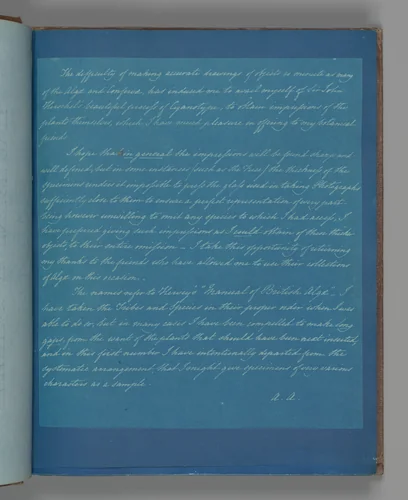 The difficulty of making accurate drawings of objects as minute as many
of the Algæ and Confervæ, has induced me to avail myself of Sir John
Herschel's beautiful process of Cyanotype, to obtain impressions of the
plants themselves, which I have much pleasure in offering to my botanical
friends.
I hope that in general the impressions will be found sharp and
well defined, but in some instances (such as the Fuci) the thickness of the
specimens renders it impossible to press the glass used in taking Photographs
sufficiently close to them to ensure a perfect representation of every part.
Being however unwilling to omit any species to which I had access, I
have preferred giving such impressions as I could obtain of these thick
objects, to their entire omission. I take this opportunity of returning
my thanks to the friends who have allowed me to use their collections
of Algæ on this occasion.
The names refer to Harvey's "Manual of British Algæ". I
have taken the Tribes and Species in their proper order when I was
able to do so, but in many cases I have been compelled to make long
gaps, from the want of the plants that should have been next inserted,
and in this first number I have intentionally departed from the
systematic arrangement that I might give specimens of very various
characters as a sample.
A. A.